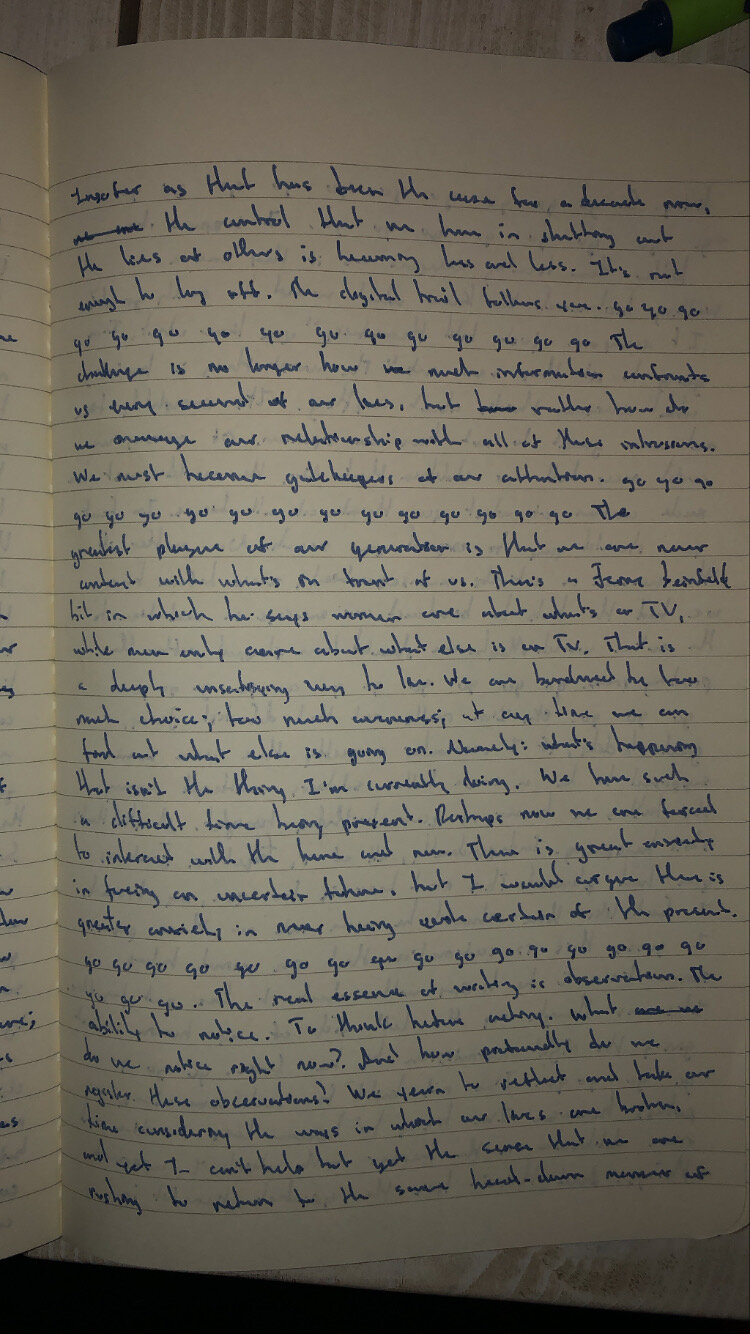 Insofar as that has been the case for a decade now,
the control that we have in shutting out
the lives of others is becoming less and less. It's not
enough to log off. The digital trail follows you. go go go
go go go go go go go go go go go go go The
challenge is no longer how much information confronts
us every second of our lives, but rather how do
we manage our relationship with all of these intrusions.
We must become gatekeepers of our attention. go go go
go go go go go go go go go go go go go The
greatest plague of our generation is that we are never
content with what's in front of us. There's a Jerry Seinfeld
bit in which he says women care about what's on TV,
while men only care about what else is on TV. That is
a deeply unsatisfying way to live. We are burdened by too
much choice; too much awareness; at any time we can
find out what else is going on. Namely: what's happening
that isn't the thing I'm currently doing. We have such
a difficult time being present. Perhaps now we are forced
to interact with the here and now. There is great anxiety
in facing an uncertain future, but I would argue there is
greater anxiety in never being quite certain of the present.
go go go go go go go go go go go go go go go
go go go. The real essence of writing is observation. The
ability to notice. To think before acting. What
do we notice right now? And how profoundly do we
register these observations? We yearn to reflect and take our
time considering the ways in which our lives are broken,
and yet I can't help but get the sense that we are
rushing to return to the same head-down manner of